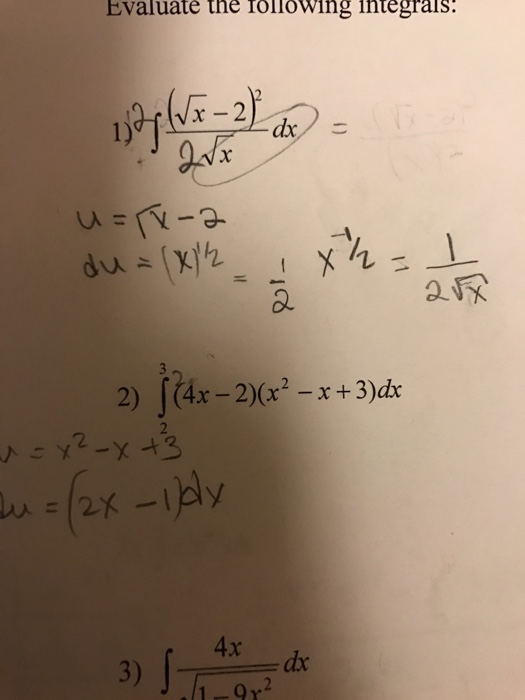 Evaluate the following integrals:
1) 2∫ (√x − 2)² / 2√x dx =
u = √x − 2
du = (x)^1/2 = 1/2 x^-1/2 = 1/2√x
2) ∫₂³ 2(4x − 2)(x² − x + 3)dx
u = x² − x + 3
du = (2x − 1)dx
3) ∫ 4x / √1 − 9x² dx